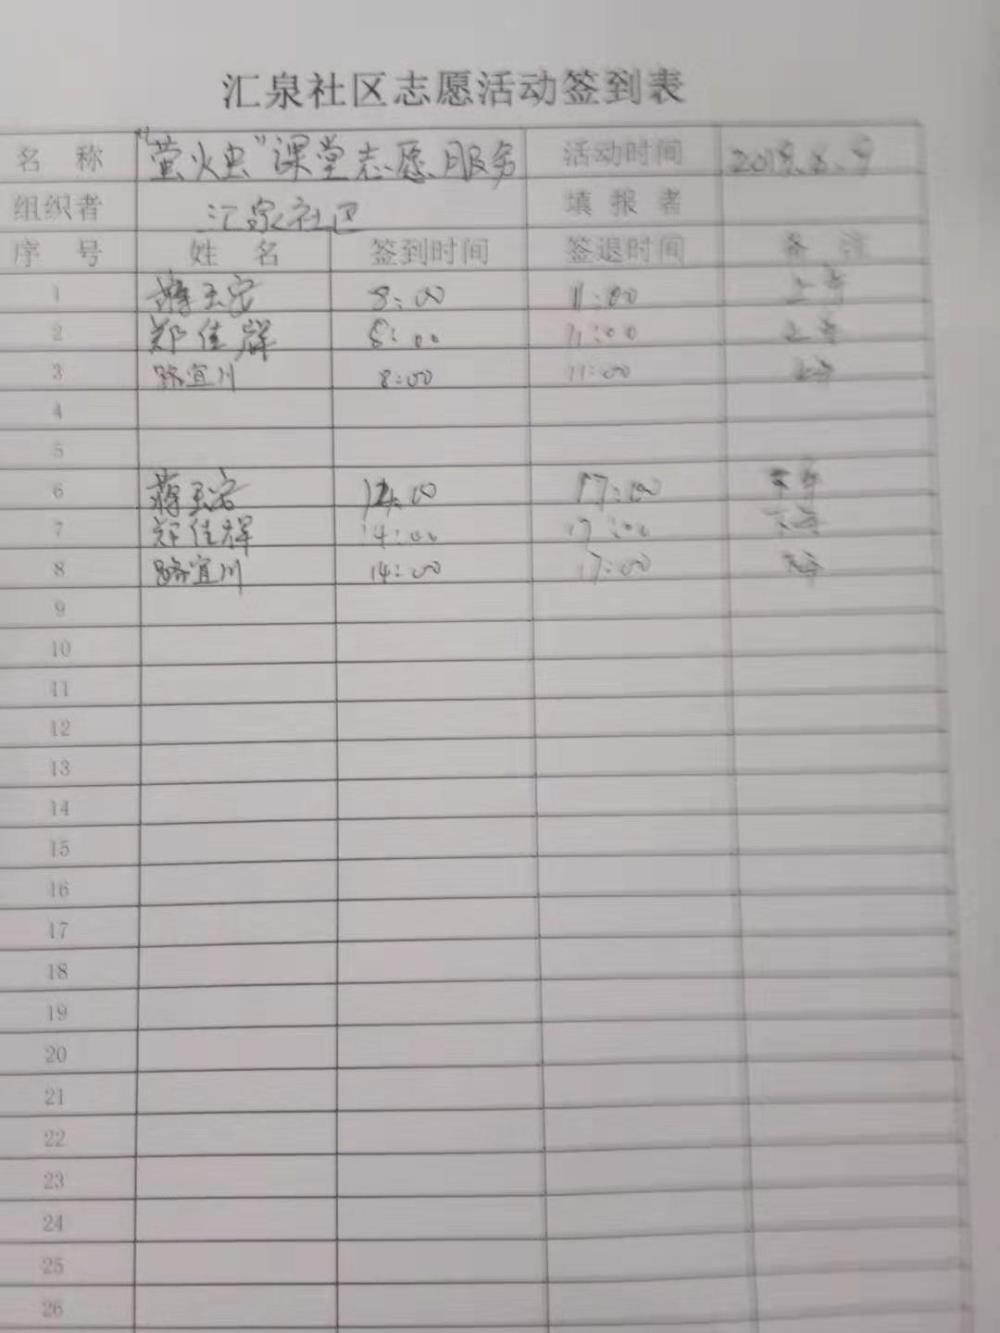 汇泉社区志愿活动签到表
名 称 "萤火虫"课堂志愿服务 活动时间
组织者 汇泉社区 填报者
序 号 姓 名 签到时间 签退时间 备 注
1 8:00 11:00 上午
2 郑佳辉 8:00 11:00 上午
3 路宜川 8:00 11:00 上午
4
5
6 14:00 17:00 下午
7 郑佳辉 14:00 17:00 下午
8 路宜川 14:00 17:00 下午
9
10
11
12
13
14
15
16
17
18
19
20
21
22
23
24
25
26